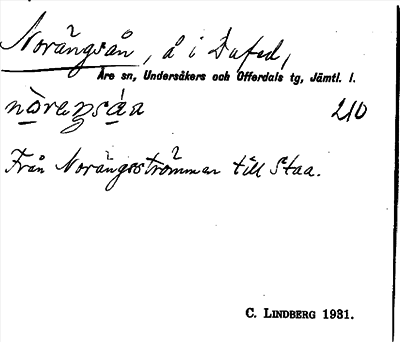 Norängsån, å i Dufed,
Åre sn, Undersåkers och Offerdals tg, Jämtl. l.
nòrengsáa 210
Från Norängsströmmar till Staa.
C. LINDBERG 1931.